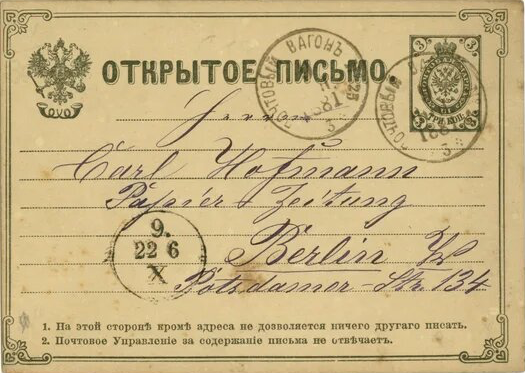 ПОЧТОВЫЙ ВАГОНЪ
1881
3
3 3
ТРИ КОП.
3 3
ПОЧТОВЫЙ
1881
3
ОТКРЫТОЕ ПИСЬМО
Herrn
Carl Hofmann
Papier-Zeitung
Berlin W
Potsdamer-Str. 134
9.
22 6
X
1. На этой сторонѣ кромѣ адреса не дозволяется ничего другаго писать.
2. Почтовое Управленіе за содержаніе письма не отвѣчаетъ.